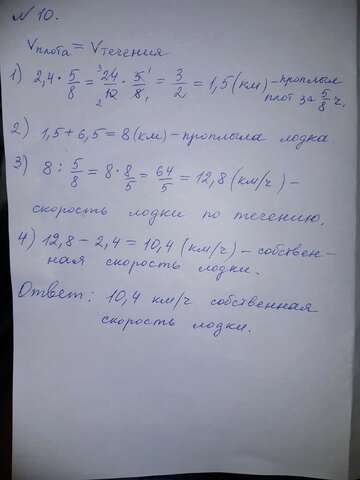 № 10.
Vплота = Vтечения
1) 2,4 · 5/8 = 24/10 · 5/8 = 3/2 = 1,5 (км) – проплыл
плот за 5/8 ч.
2) 1,5 + 6,5 = 8 (км) – проплыла лодка
3) 8 : 5/8 = 8 · 8/5 = 64/5 = 12,8 (км/ч) –
скорость лодки по течению.
4) 12,8 – 2,4 = 10,4 (км/ч) – собствен-
ная скорость лодки.
Ответ: 10,4 км/ч собственная
скорость лодки.